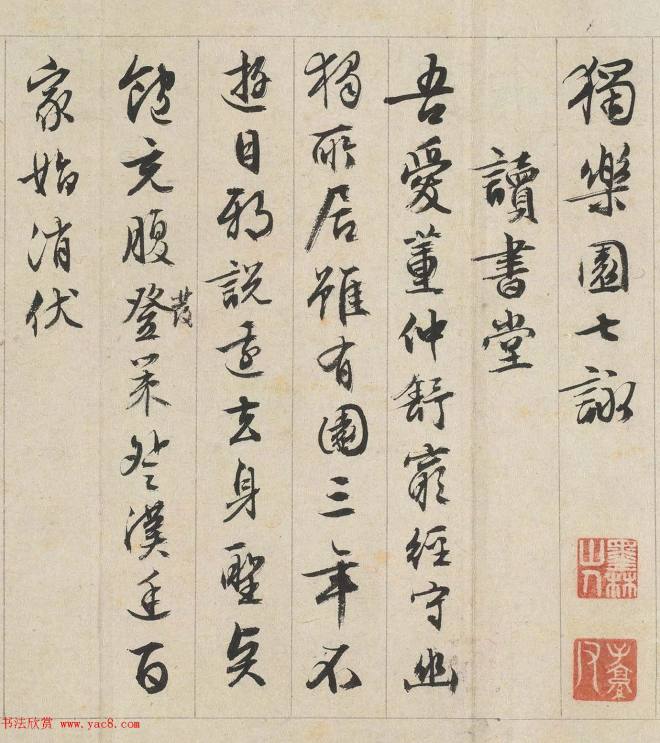 獨樂園七詠
讀書堂
吾愛董仲舒窮經守幽
獨所居雖有園三年不
遊目邪說遠去身聖言
飽充腹登發策登漢廷百
家始消伏
墨林山人
书法欣赏 www.yac8.com